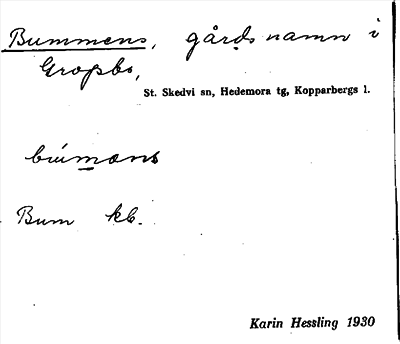 Bummens, gårdsnamn i
Gropbo,
St. Skedvi sn, Hedemora tg, Kopparbergs l.
búmans
Bum kb.
Karin Hessling 1930